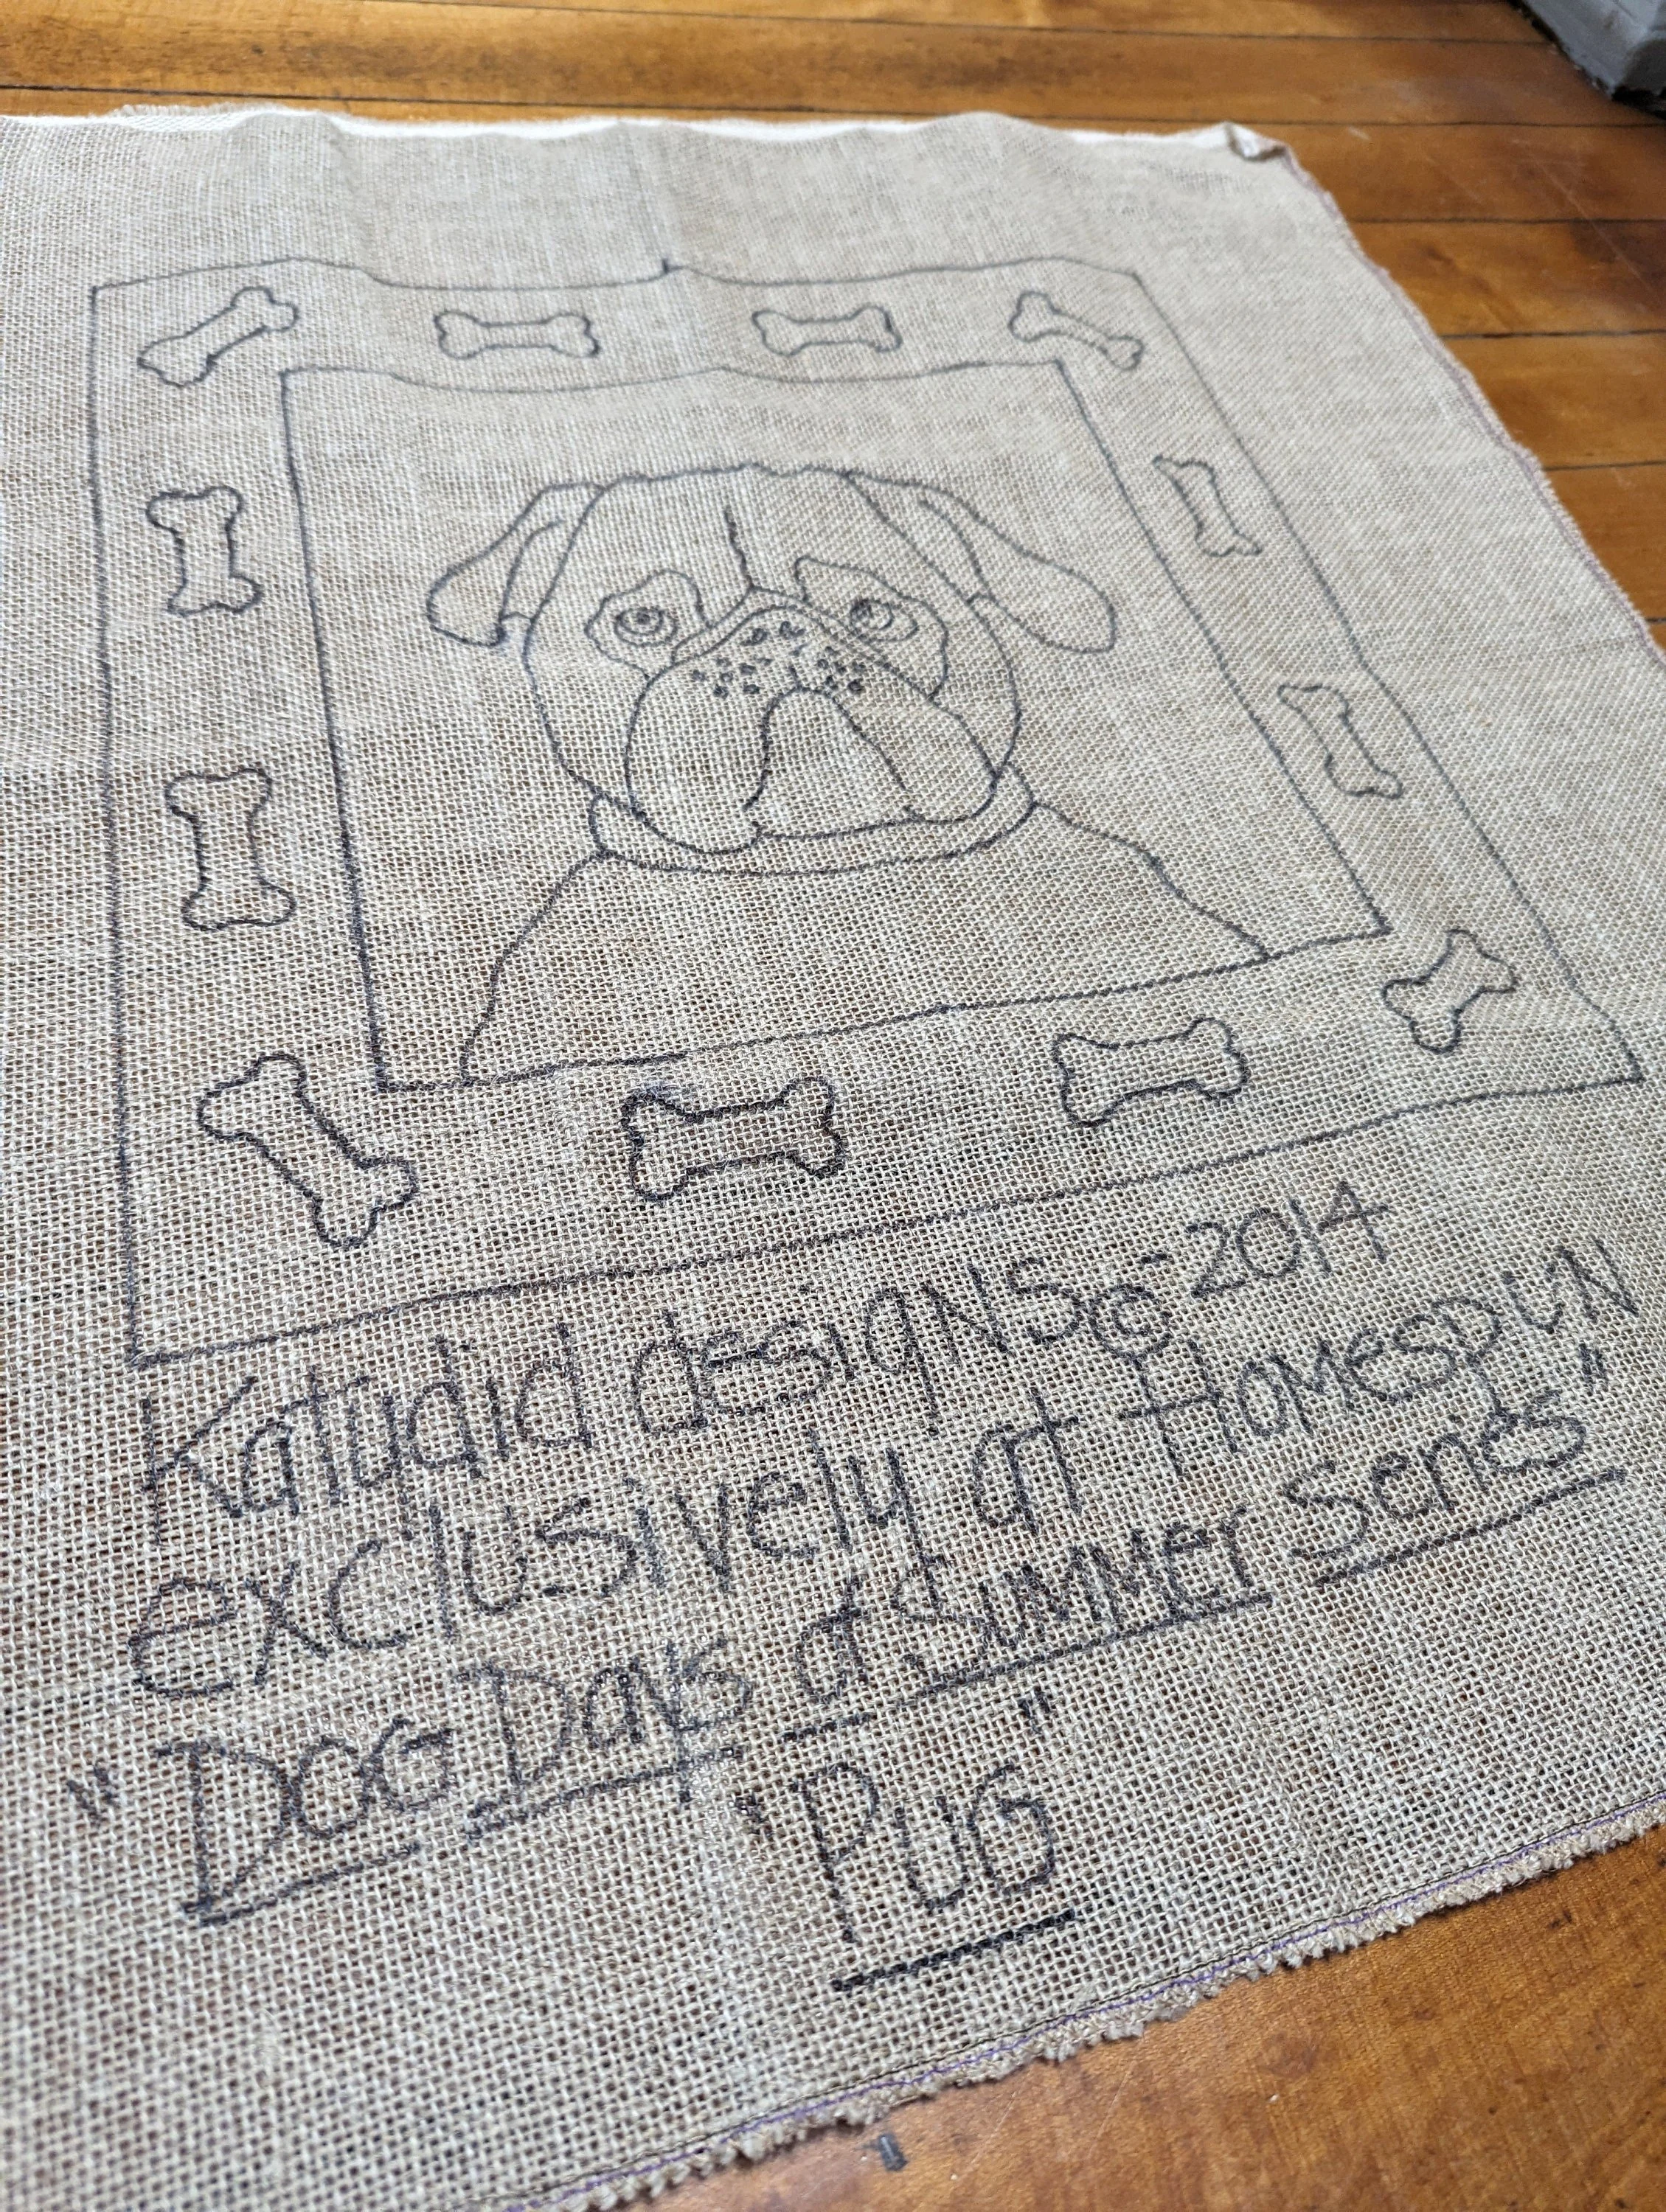 Katydid designs © - 2014
exclusively at HOMESPUN
"DOG DAYS of SUMMER Series"
"PUG"